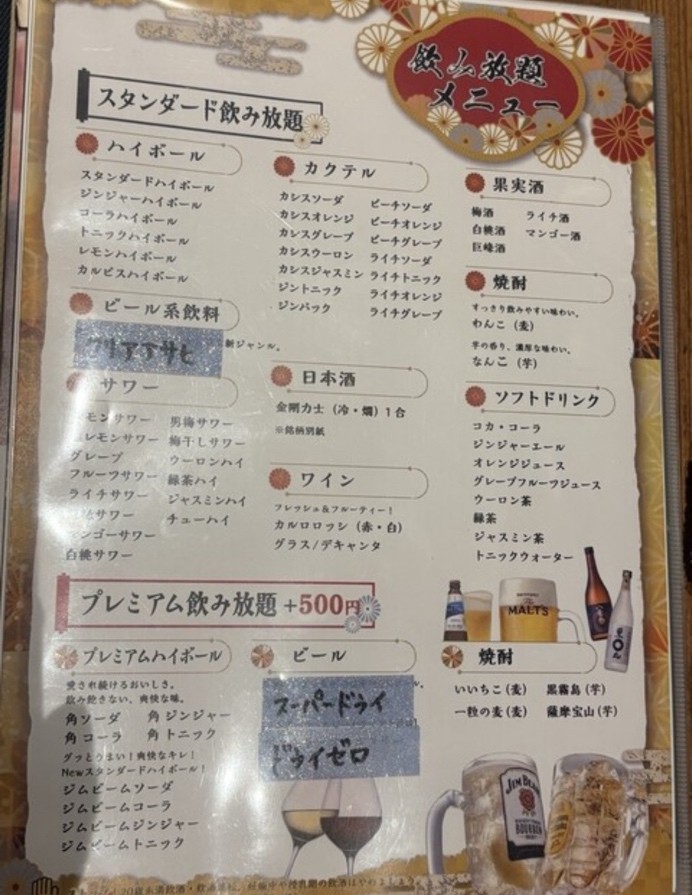 飲み放題
メニュー
スタンダード飲み放題
ハイボール
スタンダードハイボール
ジンジャーハイボール
コーラハイボール
トニックハイボール
レモンハイボール
カルピスハイボール
ビール系飲料
クリアアサヒ
新ジャンル。
サワー
モンサワー 男梅サワー
レモンサワー 梅干しサワー
グレープ ウーロンハイ
フルーツサワー 緑茶ハイ
ライチサワー ジャスミンハイ
サワー チューハイ
ンゴーサワー
白桃サワー
カクテル
カシスソーダ ピーチソーダ
カシスオレンジ ピーチオレンジ
カシスグレープ ピーチグレープ
カシスウーロン ライチソーダ
カシスジャスミン ライチトニック
ジントニック ライチオレンジ
ジンバック ライチグレープ
日本酒
金剛力士（冷・燗）1合
※銘柄別紙
ワイン
フレッシュ&フルーティー！
カルロロッシ（赤・白）
グラス/デキャンタ
果実酒
梅酒 ライチ酒
白桃酒 マンゴー酒
巨峰酒
焼酎
すっきり飲みやすい味わい。
わんこ（麦）
芋の香り、濃厚な味わい。
なんこ（芋）
ソフトドリンク
コカ・コーラ
ジンジャーエール
オレンジジュース
グレープフルーツジュース
ウーロン茶
緑茶
ジャスミン茶
トニックウォーター
MALT'S
プレミアム飲み放題 +500円
プレミアムハイボール
愛され続けるおいしさ。
飲み飽きない、爽快な味。
角ソーダ 角ジンジャー
角コーラ 角トニック
グッとうまい！爽快なキレ！
Newスタンダードハイボール！
ジムビームソーダ
ジムビームコーラ
ジムビームジンジャー
ジムビームトニック
ビール
スーパードライ
ドライゼロ
焼酎
いいちこ（麦） 黒霧島（芋）
一粒の麦（麦） 薩摩宝山（芋）
JIM BEAM
BOURBON